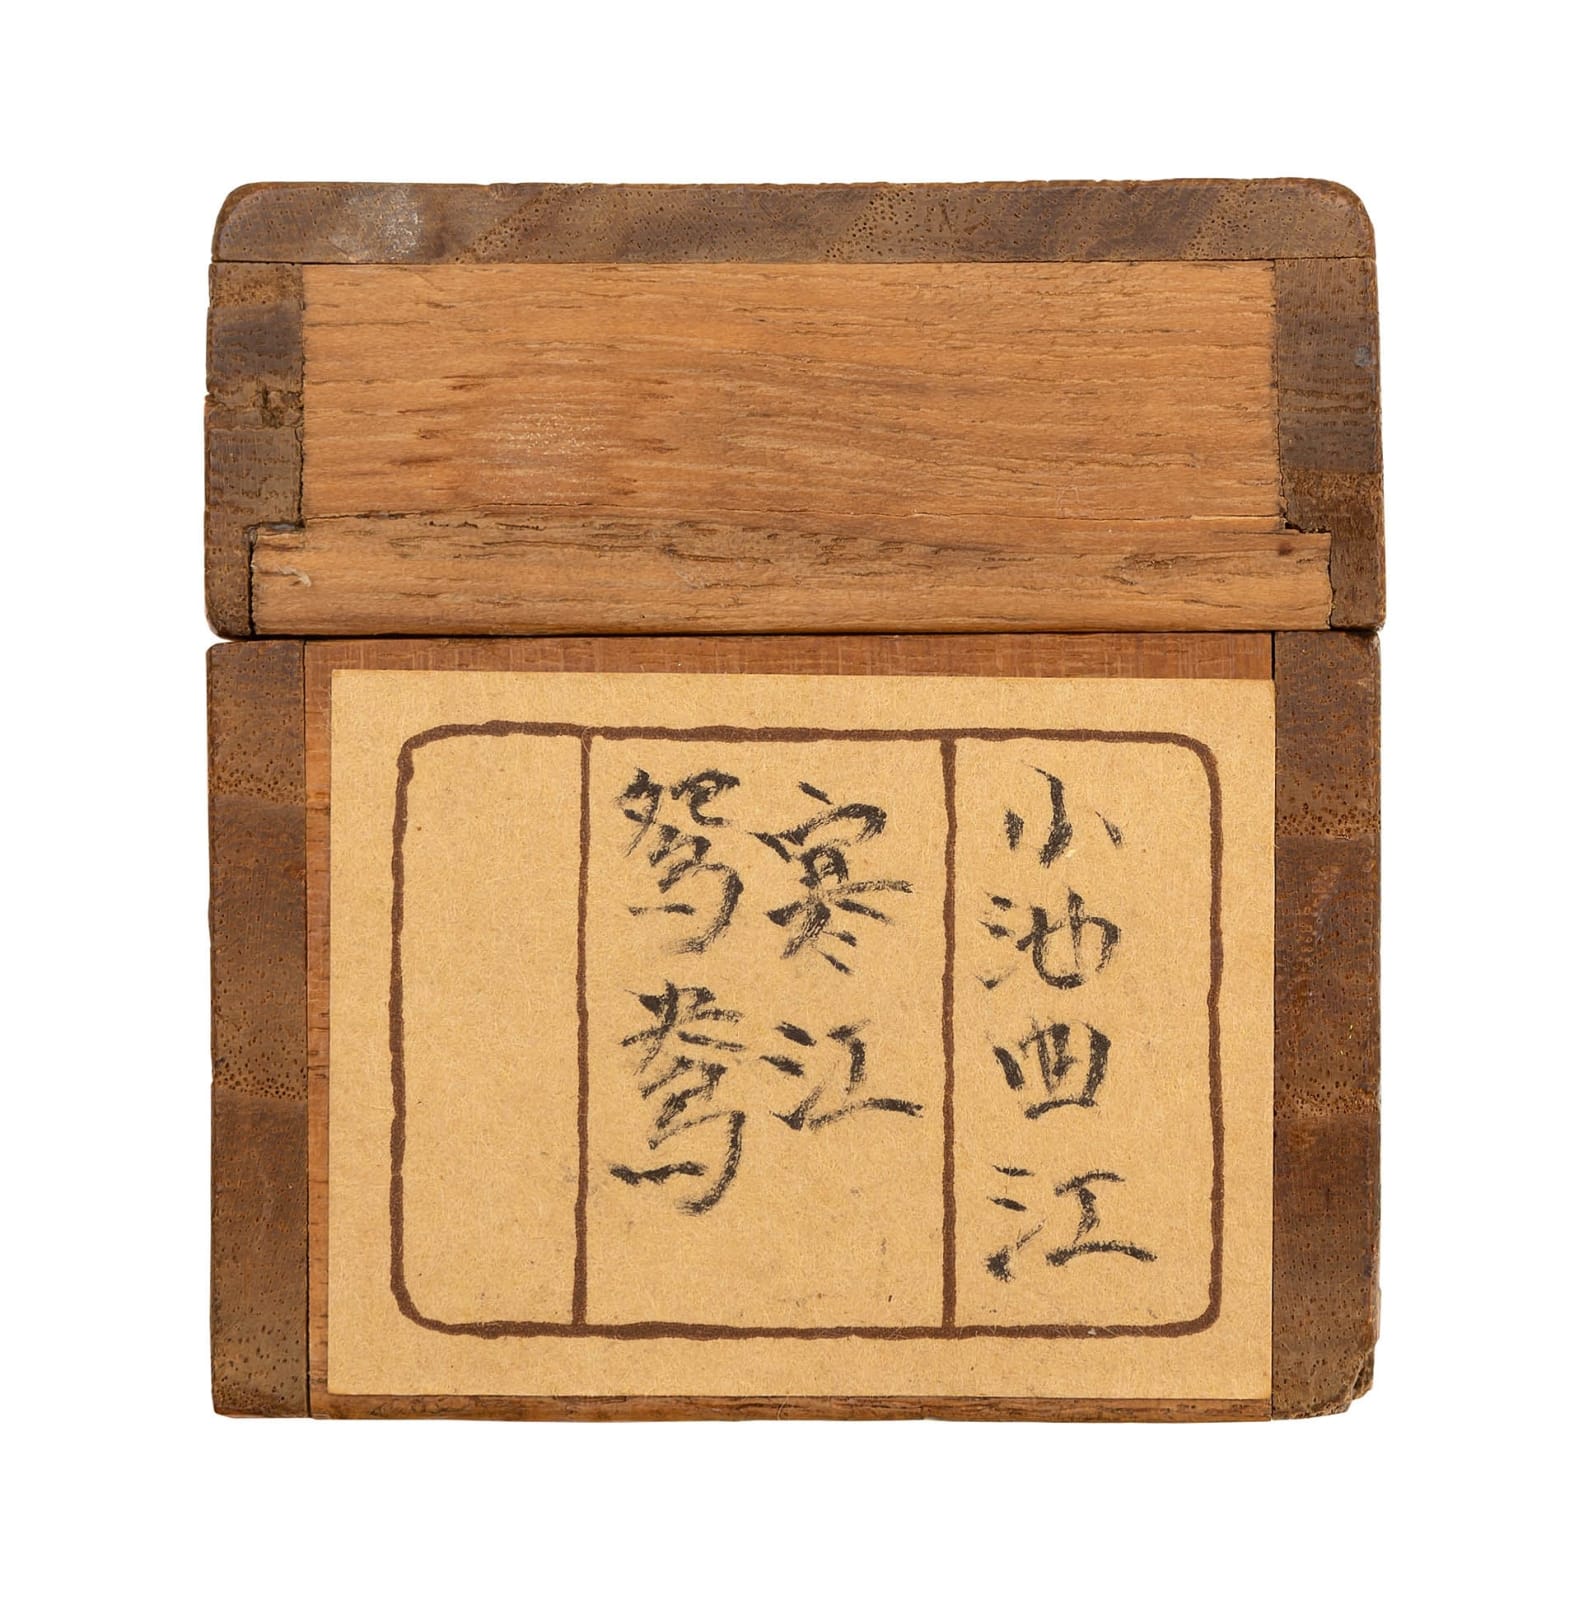 小池曲江
寒江
鴛鴦